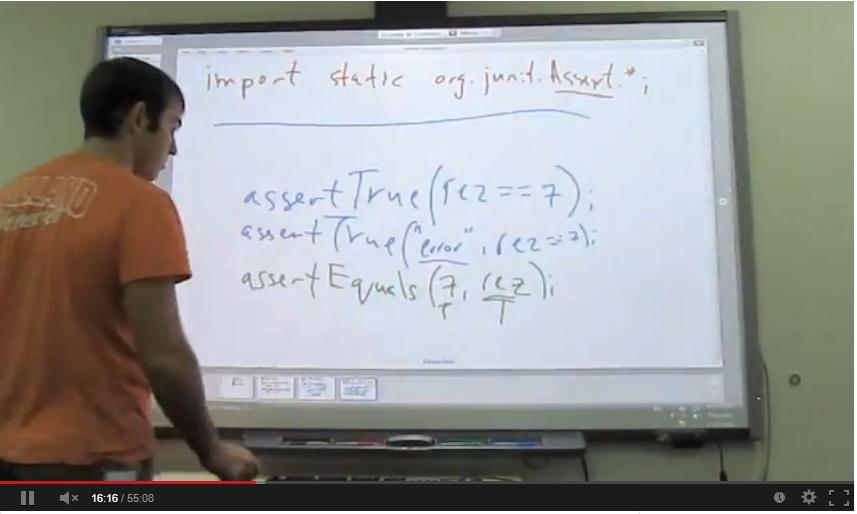 import static org.junit.Assert.*;
assertTrue(rez == 7);
assertTrue("error", rez == 7);
assertEquals(7, rez);
T T
16:16 / 55:08